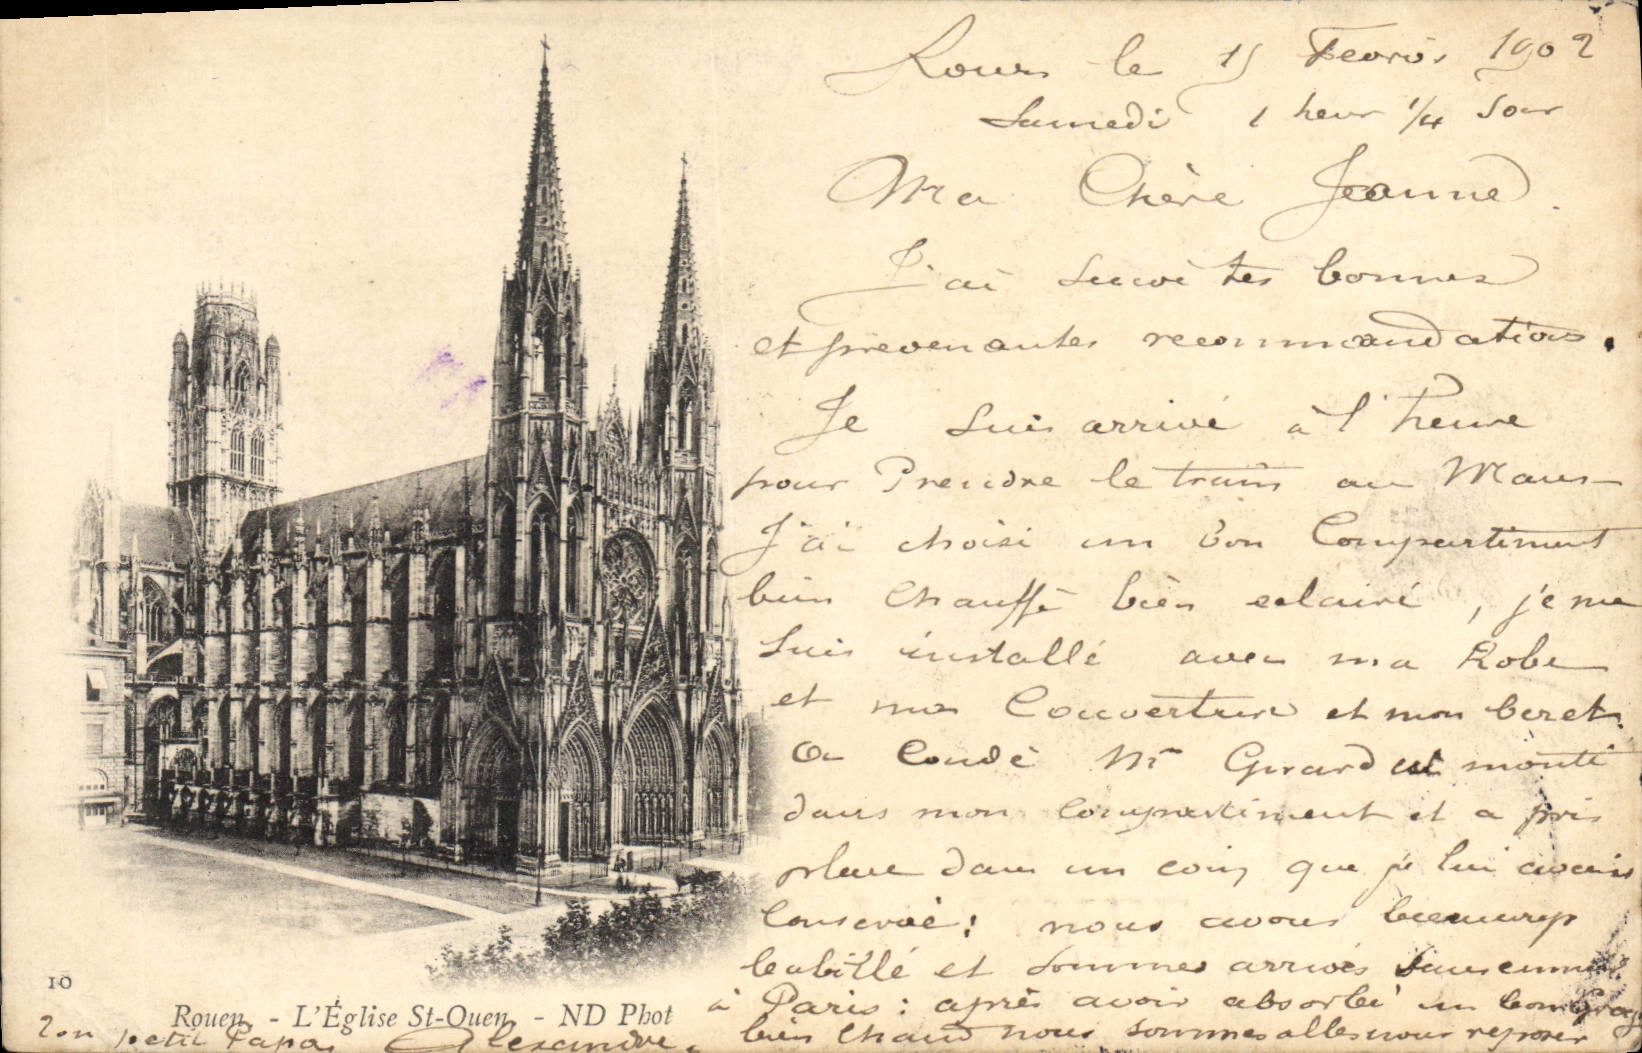 Rouen le 15 Fevrier 1902
Samedi 1 heur 1/4 Soir
Ma Chère Jeanne.
J'ai suivi tes bonnes
et prevenantes recommandations.
Je suis arrivé à l'heure
pour Prendre le train au Mans
J'ai choisi un bon Compartiment
bien Chauffé bien eclairé, je me
suis installé avec ma Robe
et ma Couverture et mon beret.
a Condé Mr Girard est monté
dans mon compartiment et a pris
place dans un coin que je lui avais
Conservé: nous avons beaucoup
babillé et sommes arrivés sans ennui
à Paris: après avoir absorbé un bon Grog
bien Chaud nous sommes allés nous reposer
Ton petit Papa Alexandre.
10
Rouen. - L'Église St-Ouen. - ND Phot